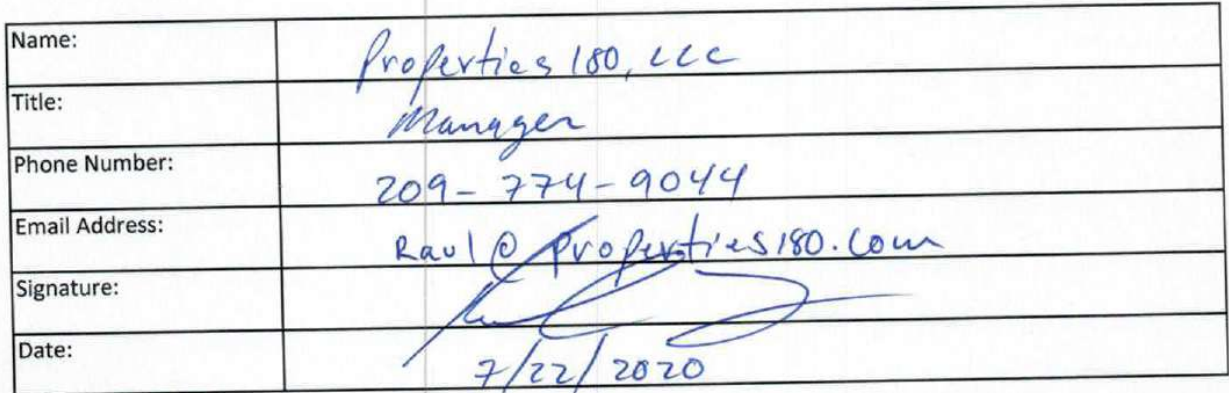 Name: Properties 180, LLC
Title: Manager
Phone Number: 209-774-9044
Email Address: Raul@properties180.com
Signature:
Date: 7/22/2020